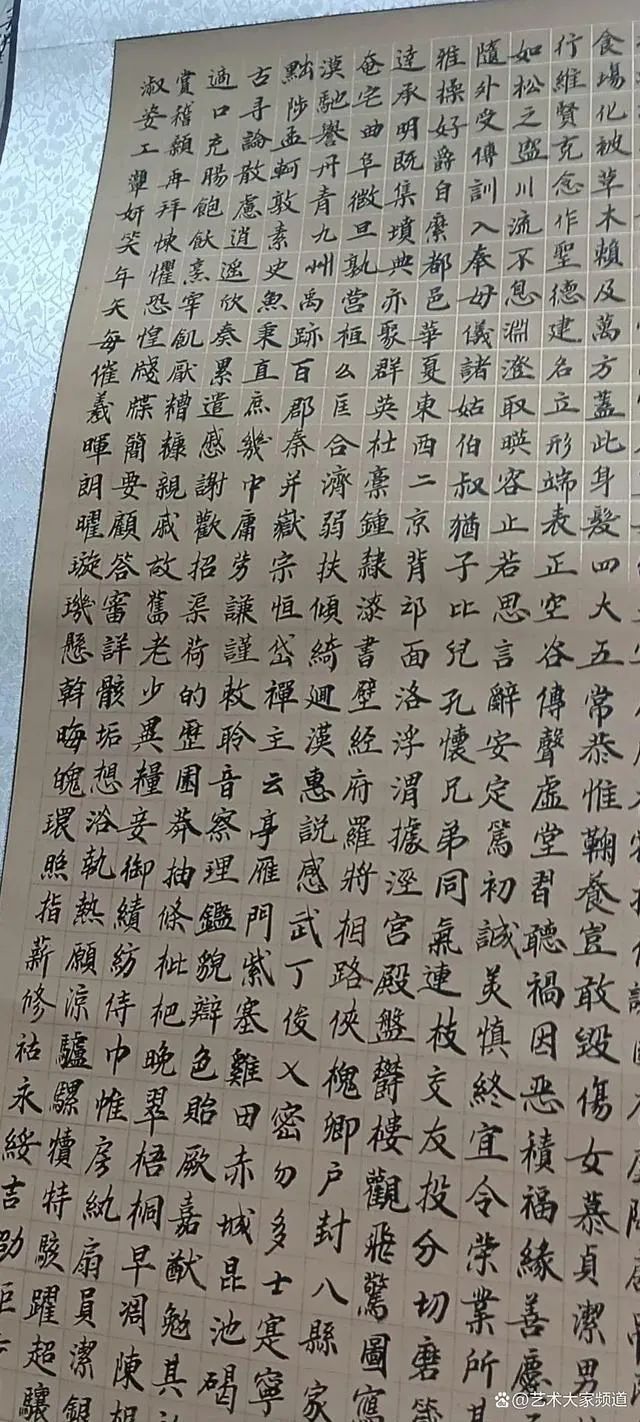 食場化被草木賴及萬方蓋此身髮四大五常恭惟鞠養豈敢毀傷女慕貞潔男
行維賢克念作聖德建名立形端表正空谷傳聲虛堂習聽禍因惡積福緣善慶
如松之盛川流不息淵澄取暎容止若思言辭安定篤初誠美慎終宜令榮業所
隨外受傅訓入奉母儀諸姑伯叔猶子比兒孔懷兄弟同氣連枝交友投分切磨
雅操好爵自縻都邑華夏東西二京背邙面洛浮渭據涇宮殿盤鬱樓觀飛驚圖寫
逹承明既集墳典亦聚群英杜稾鍾隸漆書壁經府羅將相路俠槐卿戶封八縣家
奄宅曲阜微旦孰營桓公匡合濟弱扶傾綺迴漢惠說感武丁俊乂密勿多士寔寧
漠馳譽丹青九州禹跡百郡秦并嶽宗恒岱禪主云亭雁門紫塞雞田赤城昆池碣
黜陟孟軻敦素史魚秉直庶幾中庸勞謙謹敕聆音察理鑑貌辯色貽厥嘉猷勉其
古尋論散慮逍遙欣奏累遣感謝歡招渠荷的歷園莽抽條枇杷晚翠梧桐早凋陳根
適口充腸飽飫烹宰飢厭糟糠親戚故舊老少異糧妾御績紡侍巾帷房紈扇員潔銀
賞稽顙再拜悚懼恐惶牋牒簡要顧答審詳骸垢想浴執熱願涼驢騾犢特駭躍超驤
淑姿工顰妍笑年矢每催羲暉朗曜璇璣懸斡晦魄環照指薪修祜永綏吉劭矩
@艺术大家频道